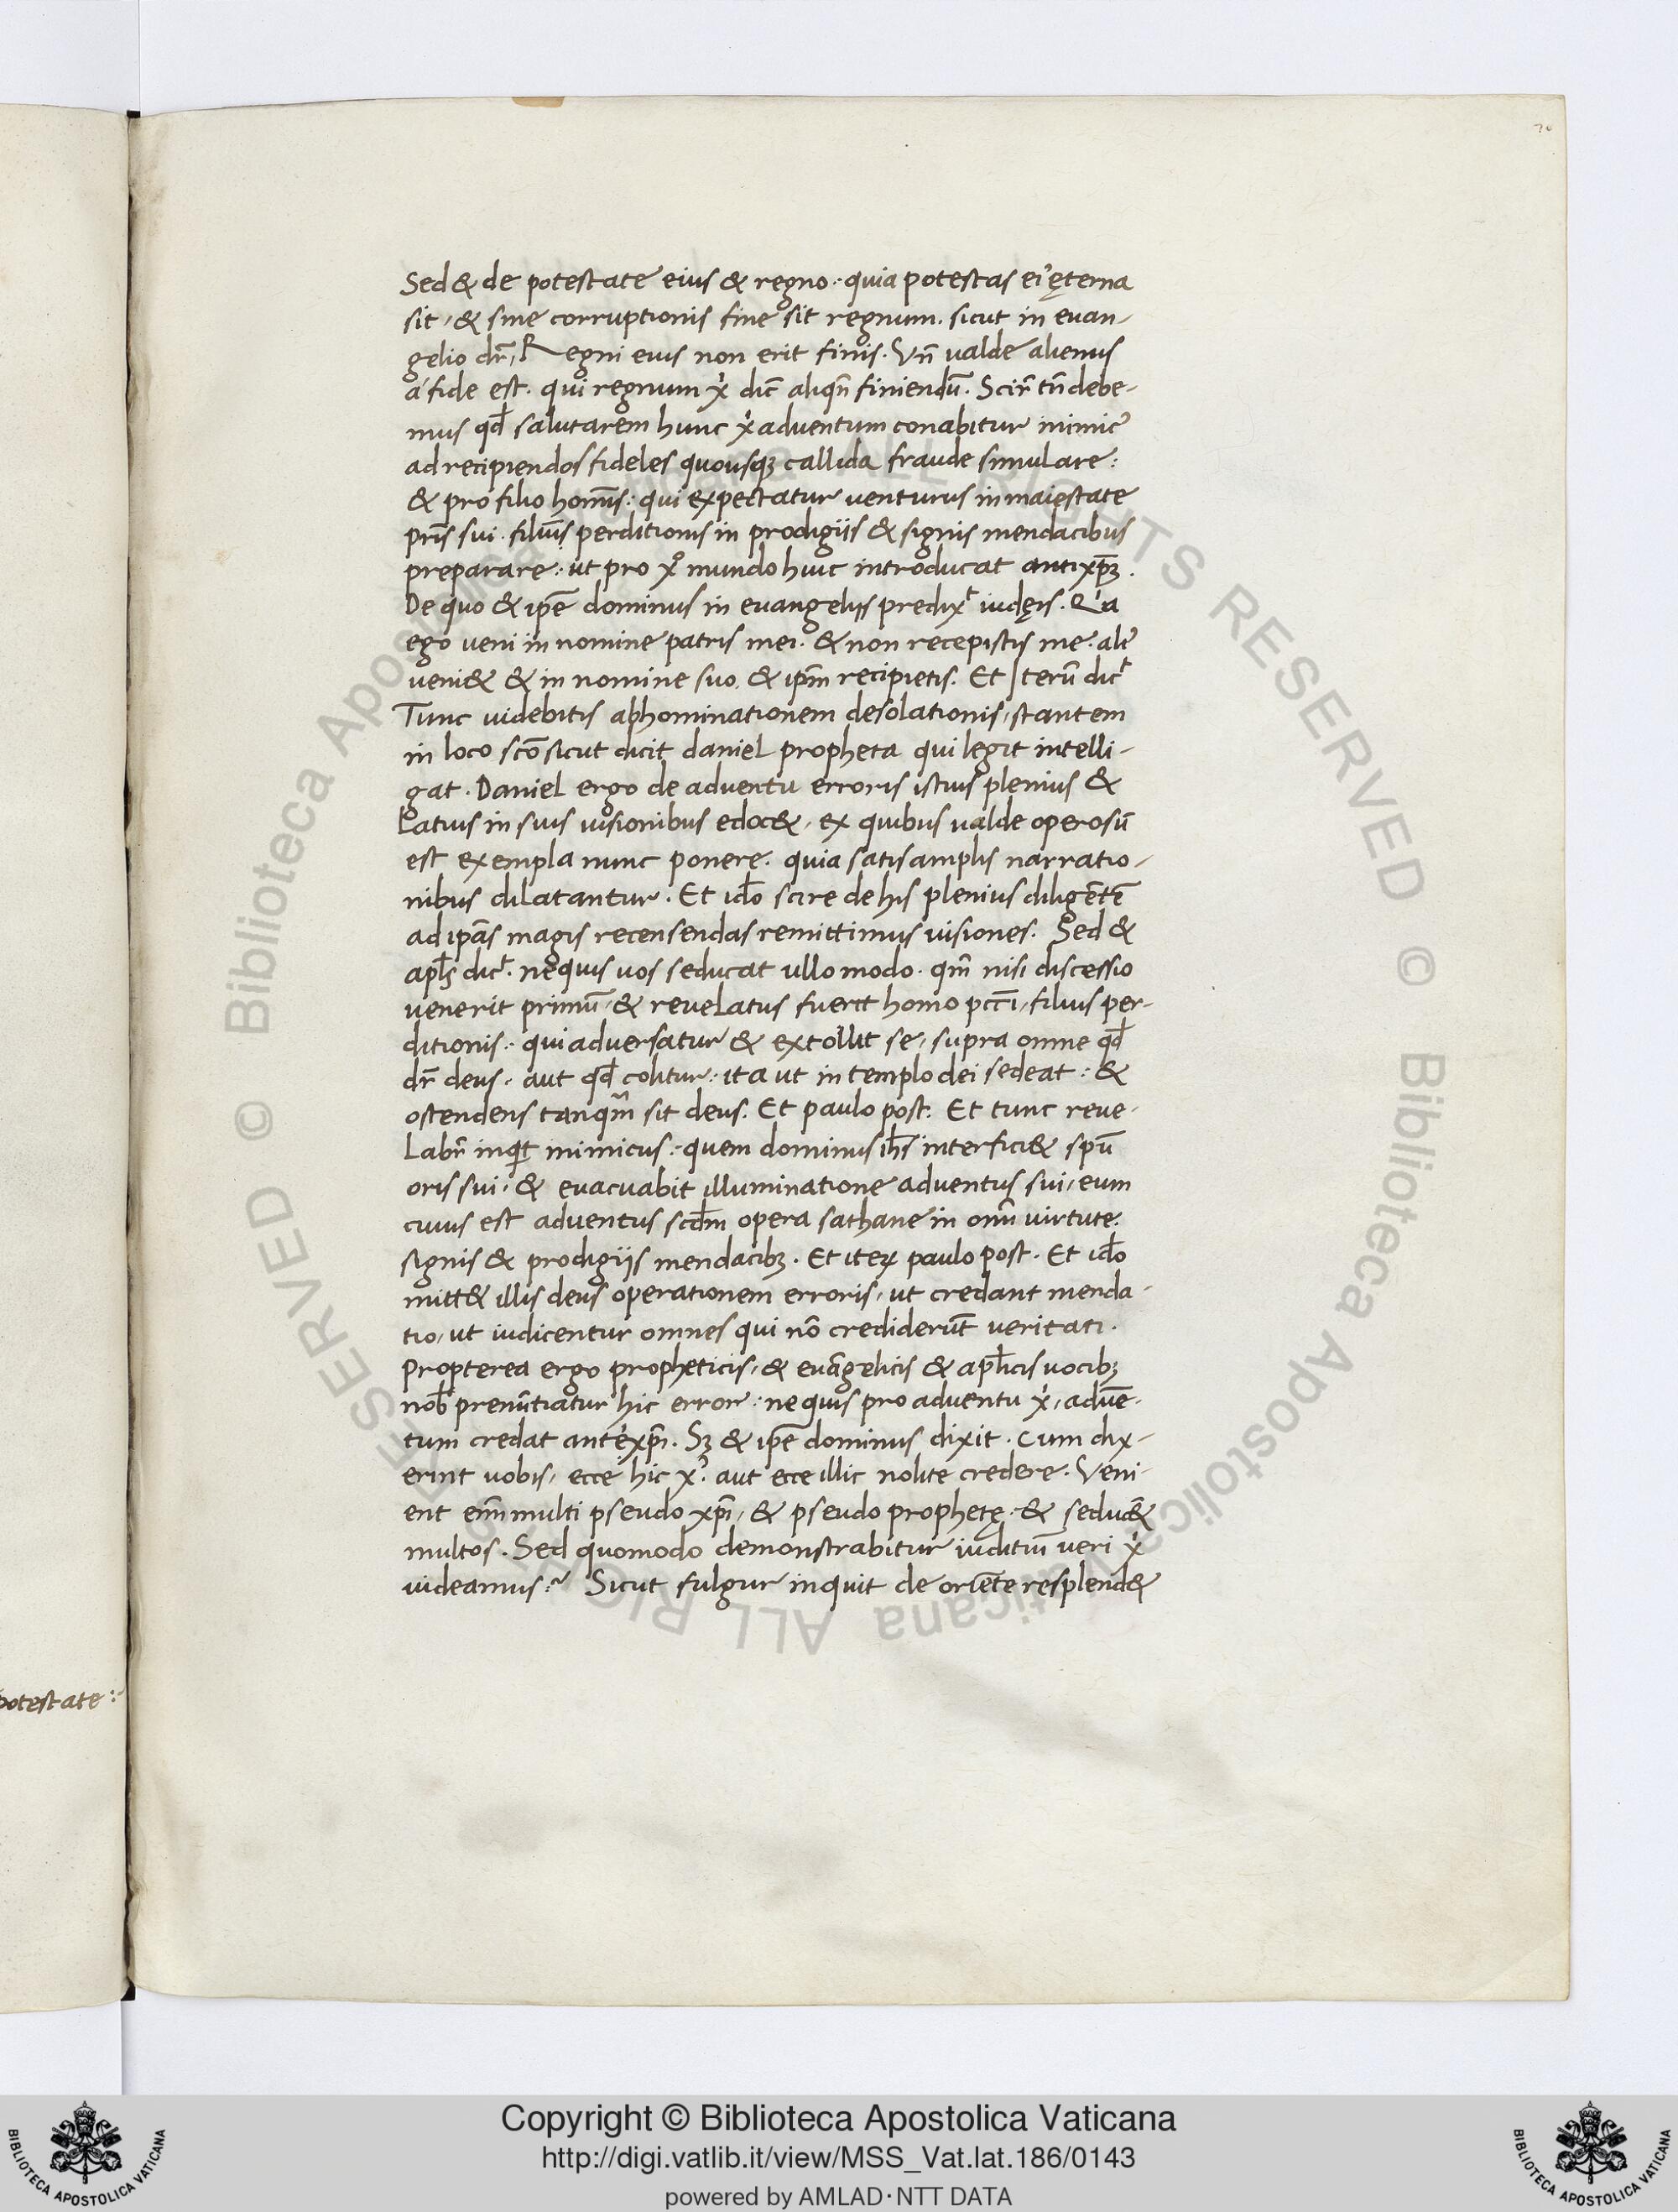 70
Sed & de potestate eius & regno : quia potestas ei᾽ ęterna
sit, & sine corruptionis fine sit regnum. sicut in euan-
gelio dr̄, Regni eius non erit finis. Vn̄ ualde alienus
a fide est. qui regnum xⁱ dic̄ aliqn̄ finiendū. Scir̄ tn̄ debe-
mus qđ salutarem hunc xⁱ adventum conabitur inimic᾽
ad recipiendos fideles quousqꝫ callida fraude simulare :
& pro filio homīs : qui expectatur venturus in maiestate
pr̄is sui. filiūs perditionis in prodigiis & signis mendacibus
preparare : ut pro xº mundo huic introducat antixp̄ꝫ.
De quo & ip̄e dominus in euangeliis predixᵗ iudęis. Qⁱa
ego veni in nomine patris mei. & non recepistis me. ali᾽
veni& & in nomine suo. & ip̄m recipietis. Et iterū dicᵗ
Tunc uidebitis abhominationem desolationis, stantem
in loco sc̄o sicut dicit daniel propheta qui legit intelli-
gat. Daniel ergo de adventu erroris istius plenius &
latius in suis uisionibus edoc&, ex quibus ualde operosū
est exempla nunc ponere. quia satis amplis narratio-
nibus dilatantur. Et iđo scire de his plenius diligētē
ad ip̄as magis recensendas remittimus uisiones. Sed &
apl̄s dicᵗ. ne quis uos seducat ullo modo. qm̄ nisi discessio
venerit primū, & reuelatus fuerit homo pcc̄i, filius per-
ditionis : qui adversatur & extollit se, supra omne qđ
dr̄ deus, aut qđ colitur : ita ut in templo dei sedeat : &
ostendens tanqᵐ sit deus. Et paulo post. Et tunc reue-
labr̄ inqⁱt inimicus : quem dominus ih̄s interfici& spū
oris sui, & evacuabit illuminatione adventus sui, eum
cuius est adventus scđm opera sathane in omī virtute.
signis & prodigiis mendacibꝫ. Et iteꝝ paulo post. Et iđo
mitt& illis deus operationem erroris, ut credant menda-
tio, ut iudicentur omnes qui nō crediderūt veritati.
Propterea ergo propheticis, & euāgelicis & apl̄icis uocibꝫ
nob̄ prenūtiatur hic error : ne quis pro adventu xⁱ, advē-
tum credat antexp̄i. Sꝫ & ip̄e dominus dixit. Cum dix-
erint uobis, ecce hic x᾽. aut ecce illic nolite credere. Veni-
ent eni̅ multi pseudo xp̄i, & pseudo prophetę. & seduc̄&
multos. Sed quomodo demonstrabitur iuditiū veri xⁱ
uideamus : Sicut fulgur inquit de oriēte resplend&
potestate :
Copyright © Biblioteca Apostolica Vaticana
http://digi.vatlib.it/view/MSS_Vat.lat.186/0143
powered by AMLAD·NTT DATA
BIBLIOTECA APOSTOLICA VATICANA
BIBLIOTECA APOSTOLICA VATICANA
© Biblioteca Apostolica Vaticana ALL RIGHTS RESERVED © Biblioteca Apostolica Vaticana ALL RIGHTS RESERVED